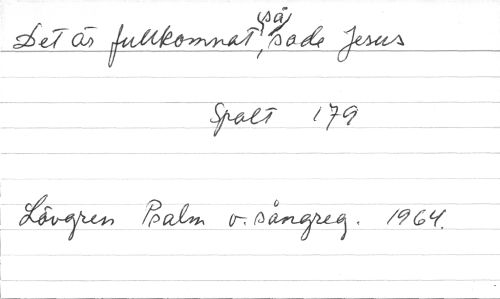 Det är fullkomnat, så sade Jesus
Spalt 179
Lövgren Psalm o. sångreg. 1964.